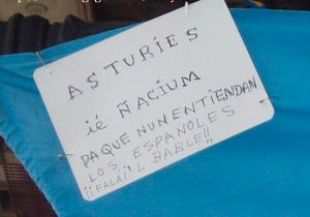 ASTURIES
ie ÑACIUM
PAQUE NUN ENTIENDAN
LOS ESPAÑOLES
¡¡FALAÍ'L BABLE!!